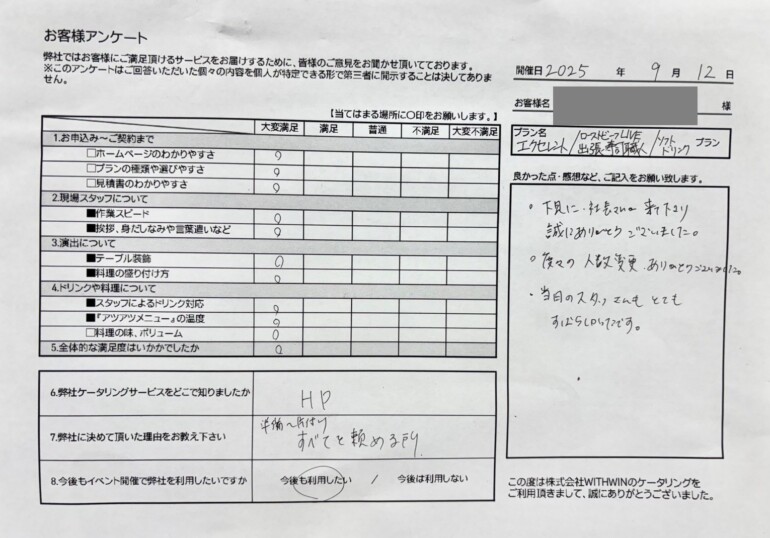 お客様アンケート
弊社ではお客様にご満足頂けるサービスをお届けするために、皆様のご意見をお聞かせ頂いております。
※このアンケートはご回答いただいた個々の内容を個人が特定できる形で第三者に開示することは決してありま
せん。
開催日 2025 年 9 月 12 日
お客様名 様
プラン名
エクセレント/ローストビーフLIVE/ソフト
出張寿司職人/ドリンク プラン
【当てはまる場所に〇印をお願いします。】
大変満足 満足 普通 不満足 大変不満足
1.お申込み～ご契約まで
□ホームページのわかりやすさ ○
□プランの種類や選びやすさ ○
□見積書のわかりやすさ ○
2.現場スタッフについて
■作業スピード ○
■挨拶、身だしなみや言葉遣いなど ○
3.演出について
■テーブル装飾 ○
■料理の盛り付け方 ○
4.ドリンクや料理について
■スタッフによるドリンク対応 ○
■『アツアツメニュー』の温度 ○
□料理の味、ボリューム ○
5.全体的な満足度はいかがでしたか ○
6.弊社ケータリングサービスをどこで知りましたか HP
7.弊社に決めて頂いた理由をお教え下さい 準備～片付け
すべてを頼める所
8.今後もイベント開催で弊社を利用したいですか 今後も利用したい / 今後は利用しない
良かった点・感想など、ご記入をお願い致します。
・下見に、社長さんが来て下さり
誠にありがとうございました。
・度々の人数変更、ありがとうございました。
・当日のスタッフさんもとても
すばらしかったです。
この度は株式会社WITHWINのケータリングを
ご利用頂きまして、誠にありがとうございました。